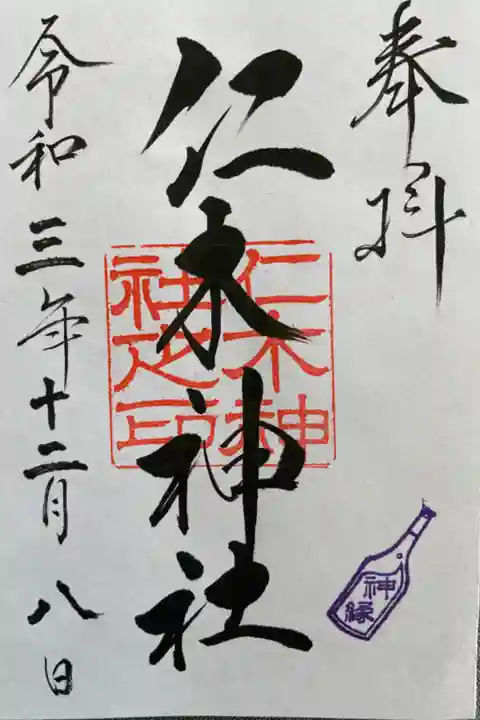 奉拝
仁木神社
仁木神
社之印
令和三年十二月八日
神縁